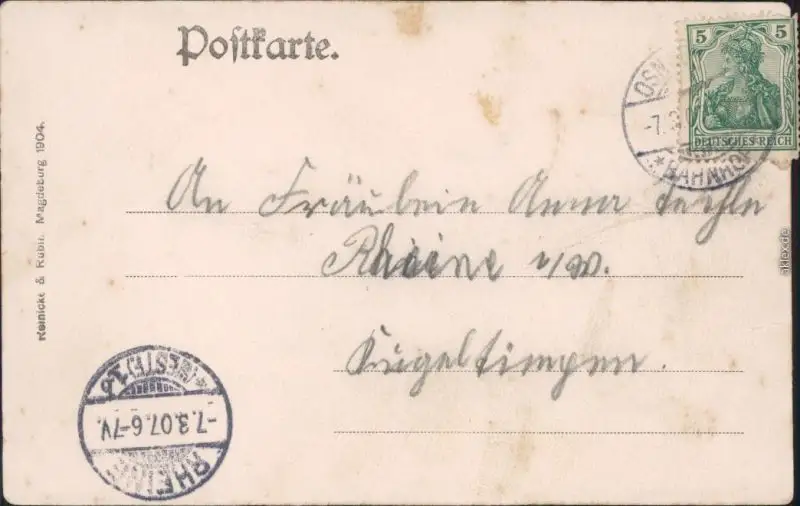 Postkarte.
5 5
DEUTSCHES REICH
OSN
-7.3.0
*BAHNHO
An Fräulein Anna
Rheine i/W.
Kugeltimpen.
Reinicke & Rubin. Magdeburg 1904.
*(WESTF.)1b
-7.3.07.6-7V.
RHEINE
aklex.de